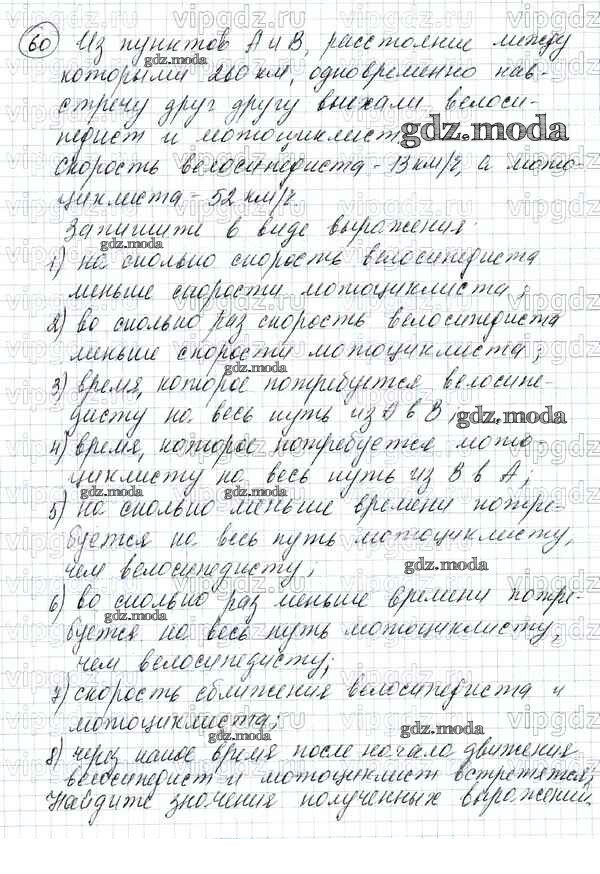 60 Из пунктов А и В, расстояние между
которыми 260 км, одновременно нав-
стречу друг другу выехали велоси-
педист и мотоциклист.
Скорость велосипедиста - 13 км/ч, а мото-
циклиста - 52 км/ч.
Запишите в виде выражения:
1) на сколько скорость велосипедиста
меньше скорости мотоциклиста;
2) во сколько раз скорость велосипедиста
меньше скорости мотоциклиста;
3) время, которое потребуется велосипе-
дисту на весь путь из А в В,
4) время, которое потребуется мото-
циклисту на весь путь из В в А;
5) на сколько меньше времени потре-
буется на весь путь мотоциклисту,
чем велосипедисту;
6) во сколько раз меньше времени потре-
буется на весь путь мотоциклисту,
чем велосипедисту;
7) скорость сближения велосипедиста и
мотоциклиста;
8) через какое время после начала движения
велосипедист и мотоциклист встретятся;
Найдите значения полученных выражений.
gdz.moda
vipgdz.ru